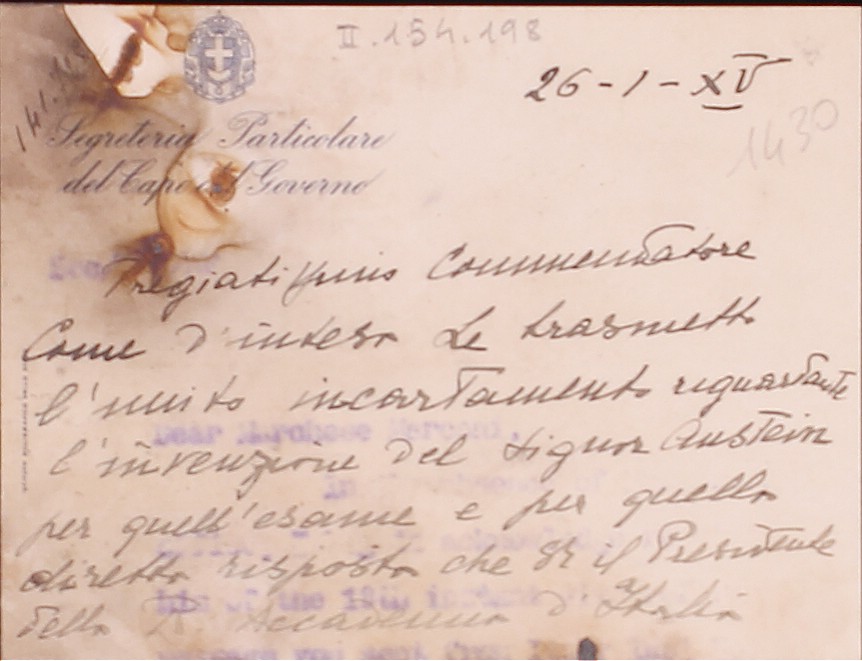 II.154.198
26-1-XV
1430
Segreteria Particolare
del Capo del Governo
Pregiatissimo Commendatore
Come d'intesa Le trasmetto
l'unito incartamento riguardante
l'invenzione del Signor Austein
Dear Marchese Marconi,
per quell'esame e per quella
diretta risposta che S.E. il Presidente
of the 19th
della R. Accademia d'Italia